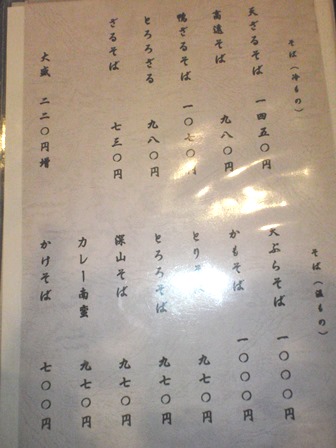 そば（冷もの）
天ざるそば 一四五〇円
高遠そば 九八〇円
鴨ざるそば 一〇七〇円
とろろざる 九八〇円
ざるそば 七三〇円
大盛 二二〇円増
そば（温もの）
天ぷらそば 一〇〇〇円
かもそば 一〇〇〇円
とりそば 九七〇円
とろろそば 九七〇円
深山そば 九七〇円
カレー南蛮 九七〇円
かけそば 七〇〇円